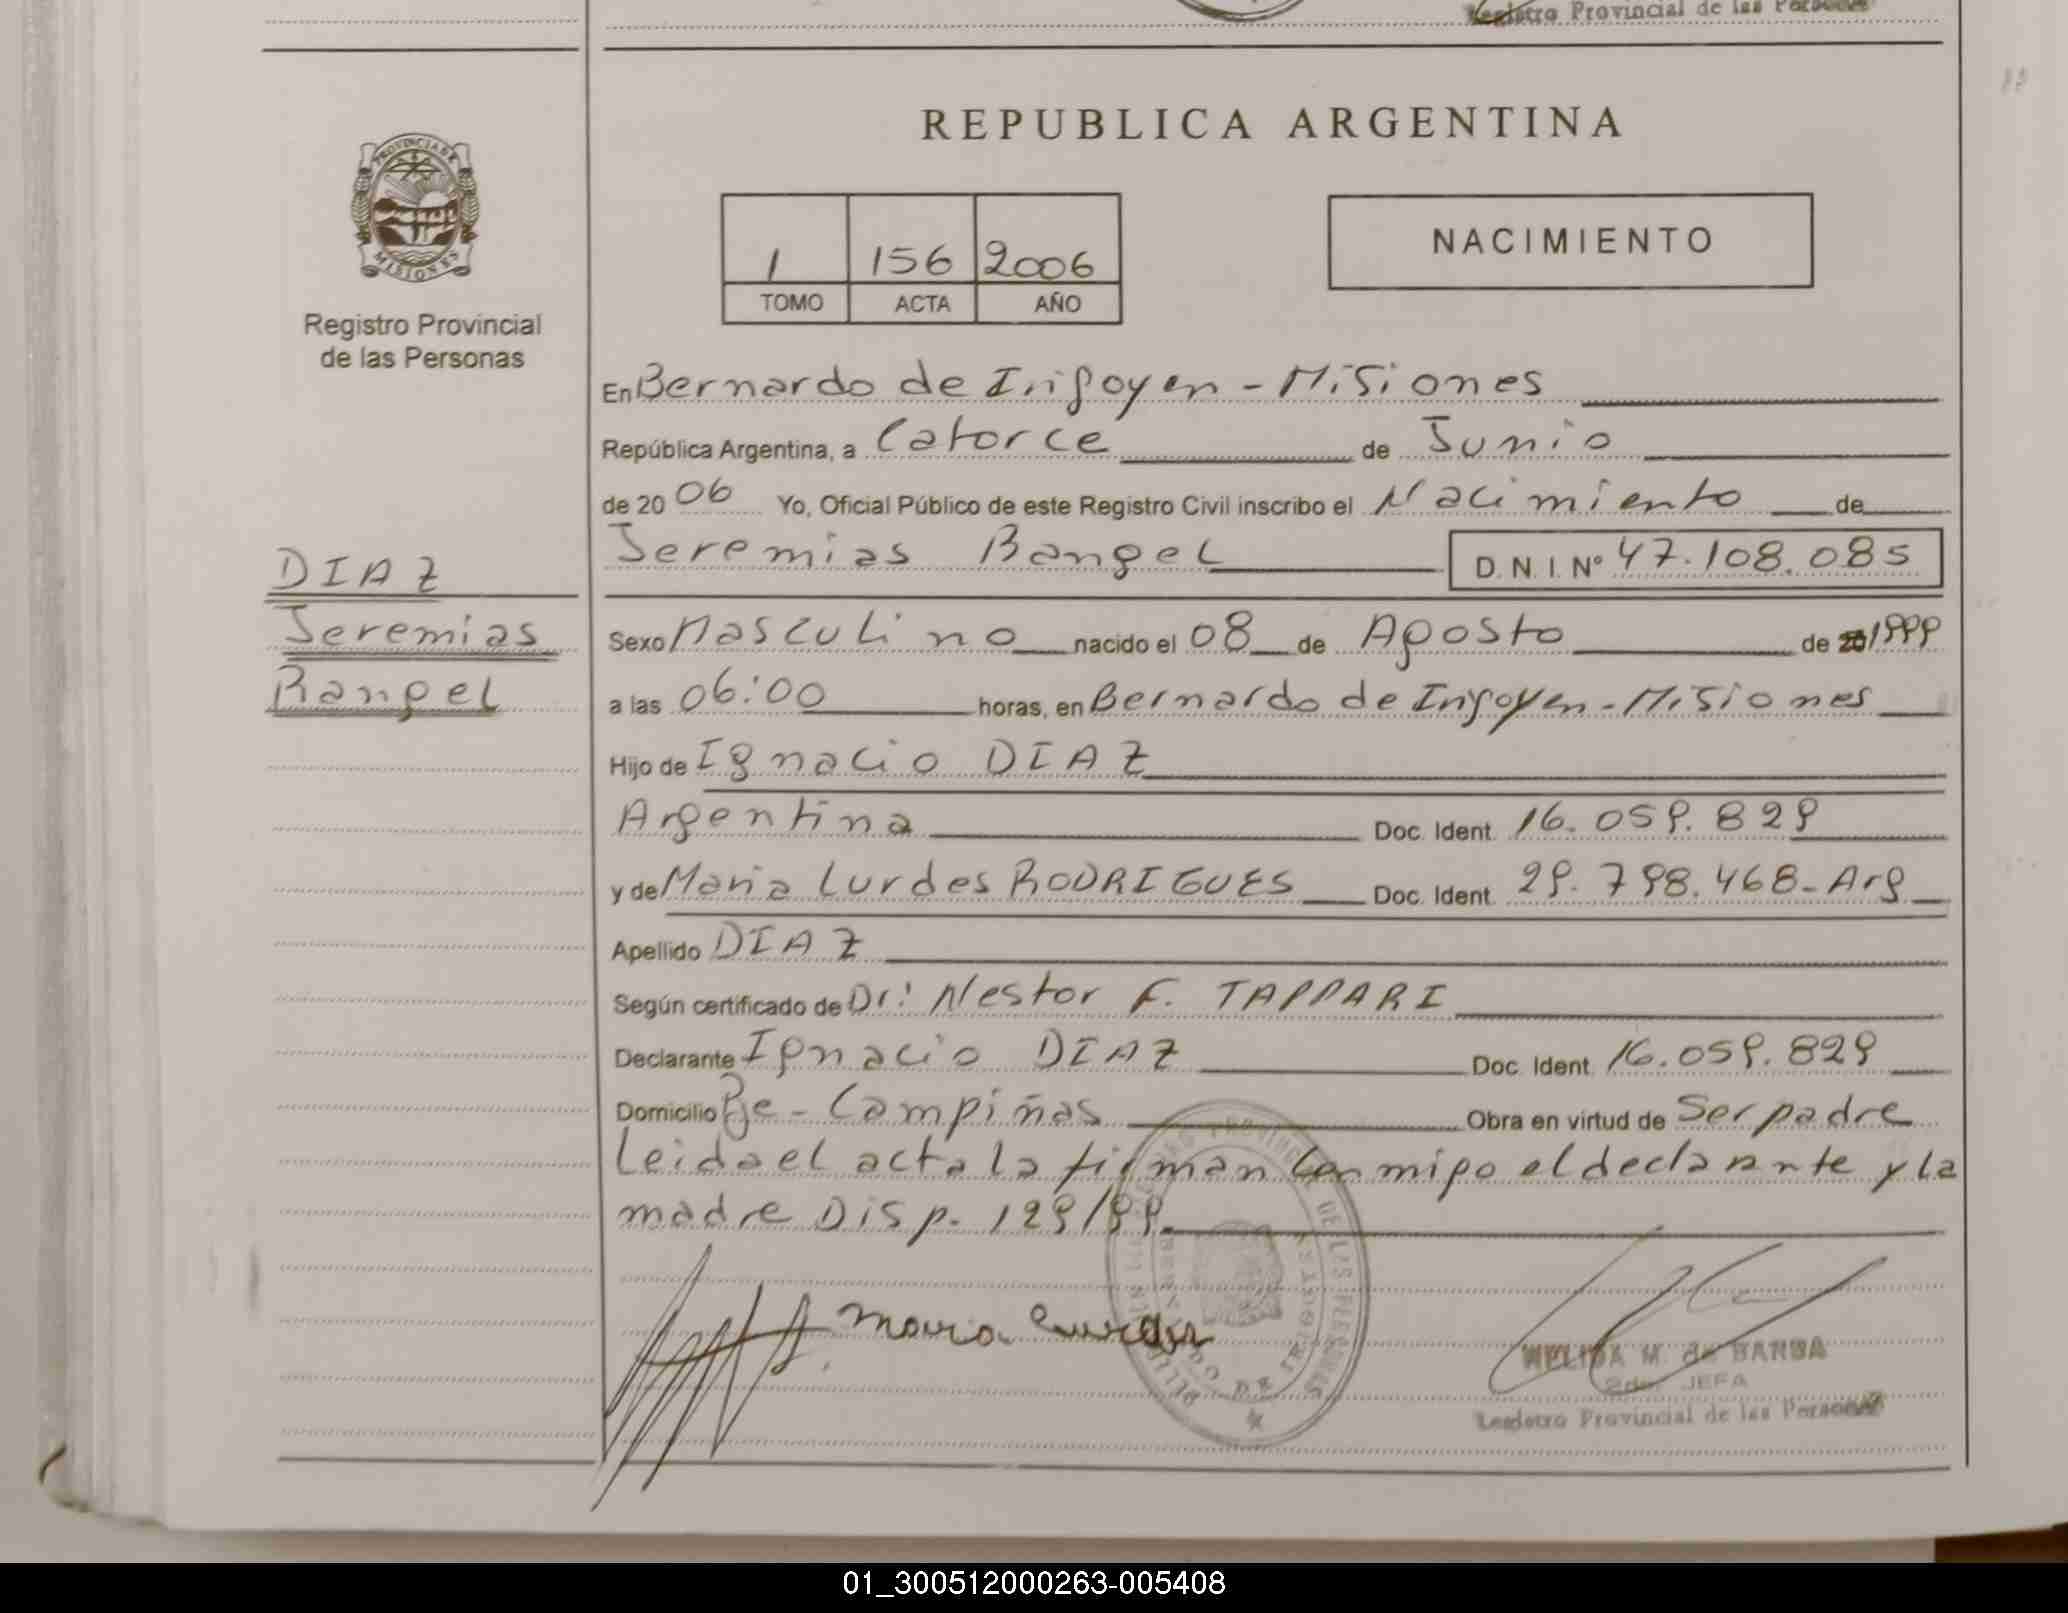 Registro Provincial de las Personas
REPUBLICA ARGENTINA
PROVINCIA DE
MISIONES
Registro Provincial
de las Personas
1 156 2006
TOMO ACTA AÑO
NACIMIENTO
En Bernardo de Irigoyen - Misiones
República Argentina, a Catorce de Junio
de 20 06 Yo, Oficial Público de este Registro Civil inscribo el Nacimiento de
Jeremias Rangel D.N.I. Nº 47.108.085
DIAZ
Jeremias
Rangel
Sexo Masculino nacido el 08 de Agosto de 20 1999
a las 06:00 horas, en Bernardo de Irigoyen - Misiones
Hijo de Ignacio DIAZ
Argentina Doc. Ident. 16.059.829
y de Maria Lurdes RODRIGUES Doc. Ident. 29.798.468 - Arg
Apellido DIAZ
Según certificado de Dr: Nestor F. TAPPARI
Declarante Ignacio DIAZ Doc. Ident. 16.059.829
Domicilio Pje - Campiñas Obra en virtud de Ser padre
Leida el acta la firman conmigo el declarante y la
madre Disp. 129/99
Maria Lurdes
NELIDA M. de BARBA
2da. JEFA
Registro Provincial de las Personas
01_300512000263-005408